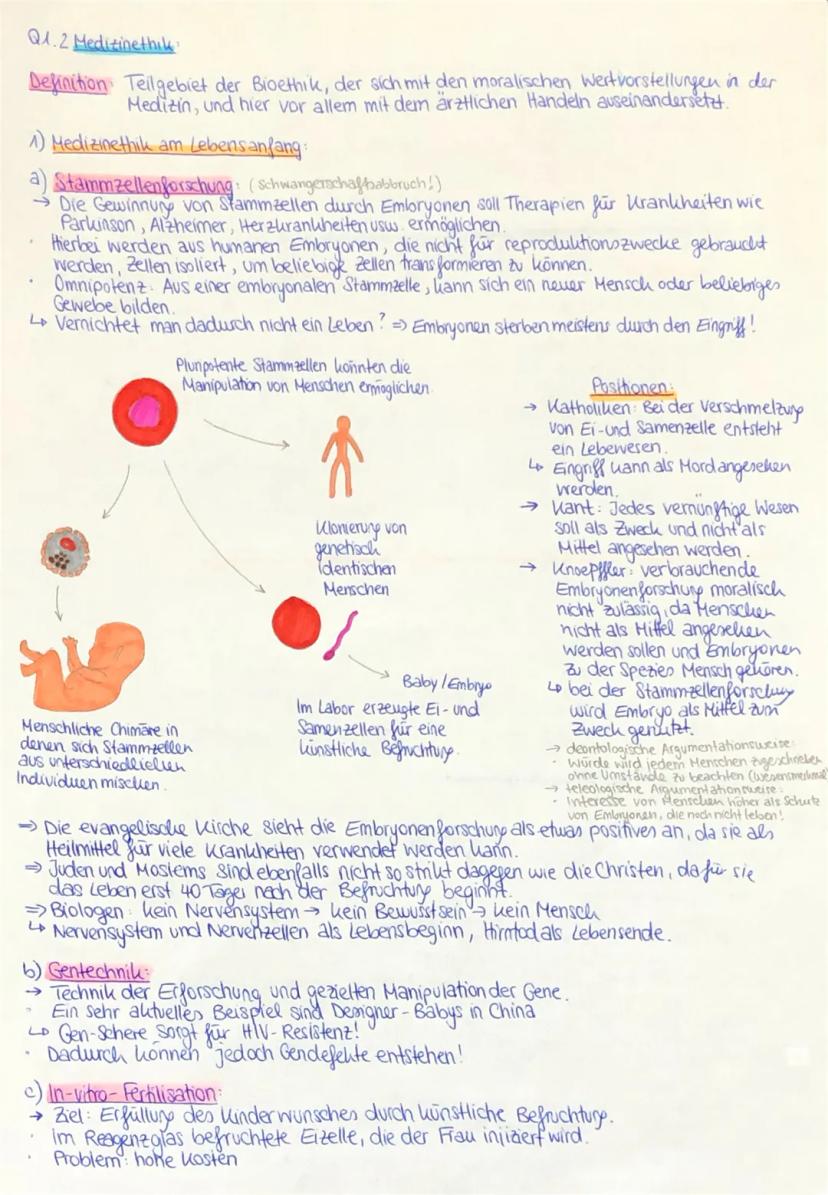 Q1.2 Medizinethik:
Definition: Teilgebiet der Bioethik, der sich mit den moralischen Wertvorstellungen in der
Medizin, und hier vor allem mit dem ärztlichen Handeln auseinandersetzt.
1) Medizinethik am Lebensanfang:
a) Stammzellenforschung: (Schwangerschaftsabbruch!)
→ Die Gewinnung von Stammzellen durch Embryonen soll Therapien für Krankheiten wie
Parkinson, Alzheimer, Herzkrankheiten usw. ermöglichen.
· Hierbei werden aus humanen Embryonen, die nicht für reproduktionszwecke gebraucht
werden, Zellen isoliert, um beliebige Zellen transformieren zu können.
· Omnipotenz: Aus einer embryonalen Stammzelle, kann sich ein neuer Mensch oder beliebiges
Gewebe bilden.
↳ Vernichtet man dadurch nicht ein Leben? => Embryonen sterben meistens durch den Eingriff!
Pluripotente Stammzellen könnten die
Manipulation von Menschen ermöglichen.
Klonierung von
genetisch
identischen
Menschen
Baby/Embryo
Im Labor erzeugte Ei- und
Samenzellen für eine
künstliche Befruchtung.
Menschliche Chimäre in
denen sich Stammzellen
aus unterschiedlichen
Individuen mischen.
Positionen:
→ Katholiken: Bei der Verschmelzung
von Ei- und Samenzelle entsteht
ein Lebewesen.
↳ Eingriff kann als Mord angesehen
werden.
→ Kant: Jedes vernünftige Wesen
soll als Zweck und nicht als
Mittel angesehen werden.
→ Knoepffler: verbrauchende
Embryonenforschung moralisch
nicht zulässig, da Menschen
nicht als Mittel angesehen
werden sollen und Embryonen
zu der Spezies Mensch gehören.
↳ bei der Stammzellenforschung
wird Embryo als Mittel zum
Zweck genutzt.
→ deontologische Argumentationsweise:
· Würde wird jedem Menschen zugeschrieben
ohne Umstände zu beachten (Wesensmerkmal)
→ teleologische Argumentationsweise:
· Interesse von Menschen höher als Schutz
von Embryonen, die noch nicht leben!
=> Die evangelische Kirche sieht die Embryonenforschung als etwas positives an, da sie als
Heilmittel für viele Krankheiten verwendet werden kann.
=> Juden und Moslems sind ebenfalls nicht so strikt dagegen wie die Christen, da für sie
das Leben erst 40 Tage nach der Befruchtung beginnt.
=> Biologen: kein Nervensystem → kein Bewusstsein → kein Mensch
↳ Nervensystem und Nervenzellen als Lebensbeginn, Hirntod als Lebensende.
b) Gentechnik:
→ Technik der Erforschung und gezielten Manipulation der Gene.
· Ein sehr aktuelles Beispiel sind Designer-Babys in China
↳ Gen-Schere sorgt für HIV-Resistenz!
· Dadurch können jedoch Gendefekte entstehen!
c) In-vitro-Fertilisation:
→ Ziel: Erfüllung des Kinderwunsches durch künstliche Befruchtung.
· Im Reagenzglas befruchtete Eizelle, die der Frau injiziert wird.
· Problem: hohe Kosten